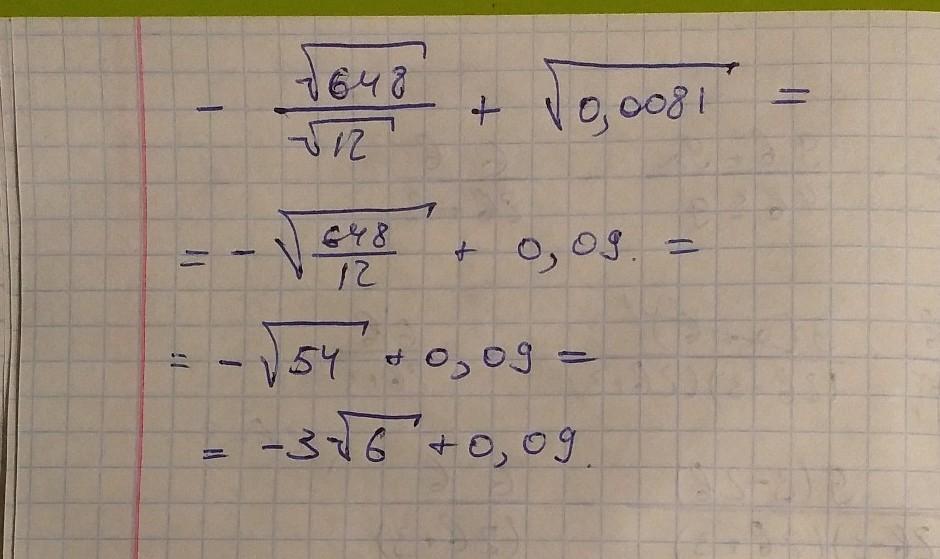 - √648 / √12 + √0,0081 =
= - √(648/12) + 0,09. =
= - √54 + 0,09 =
= -3√6 + 0,09.